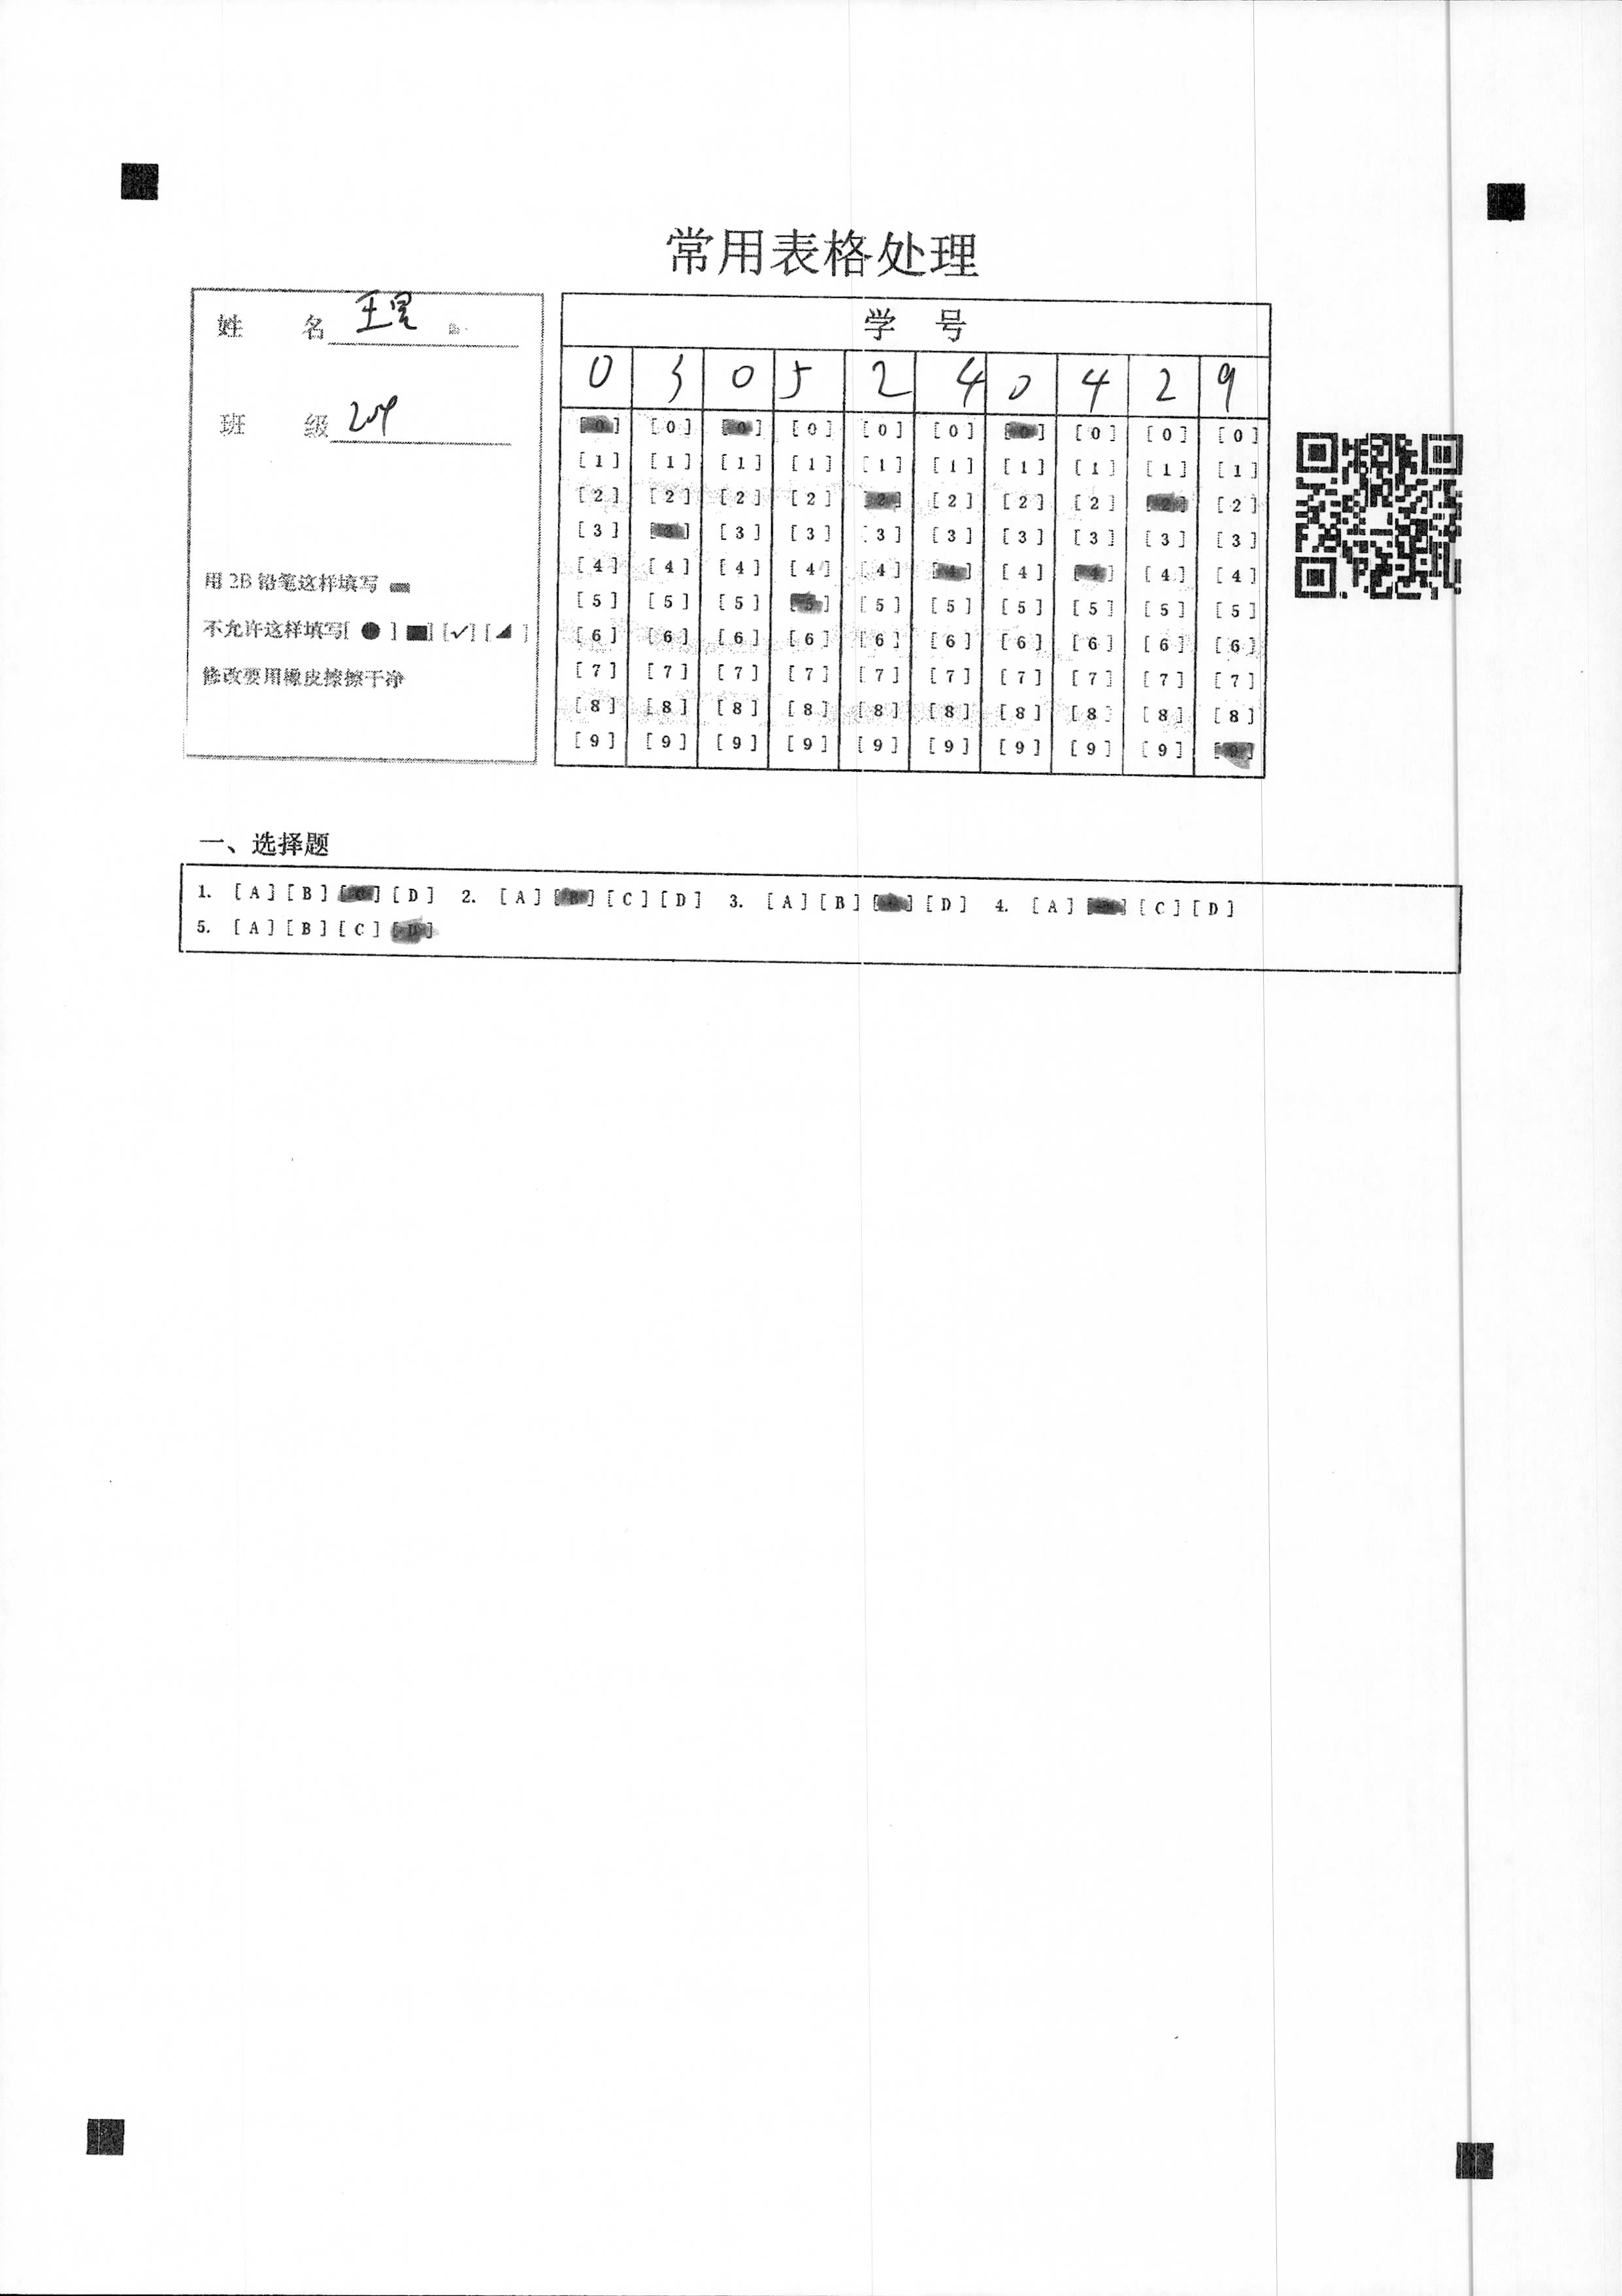 常用表格处理
姓 名 王昱
班 级 204
用 2B 铅笔这样填写
不允许这样填写[ ● ] ■] [✓] [◢ ]
修改要用橡皮擦擦干净
学 号
0 3 0 5 2 4 0 4 2 9
[0] [0] [0] [0] [0] [0] [0] [0] [0] [0]
[1] [1] [1] [1] [1] [1] [1] [1] [1] [1]
[2] [2] [2] [2] [2] [2] [2] [2] [2] [2]
[3] [3] [3] [3] [3] [3] [3] [3] [3] [3]
[4] [4] [4] [4] [4] [4] [4] [4] [4] [4]
[5] [5] [5] [5] [5] [5] [5] [5] [5] [5]
[6] [6] [6] [6] [6] [6] [6] [6] [6] [6]
[7] [7] [7] [7] [7] [7] [7] [7] [7] [7]
[8] [8] [8] [8] [8] [8] [8] [8] [8] [8]
[9] [9] [9] [9] [9] [9] [9] [9] [9] [9]
一、选择题
1. [A] [B] [C] [D] 2. [A] [B] [C] [D] 3. [A] [B] [C] [D] 4. [A] [B] [C] [D]
5. [A] [B] [C] [D]